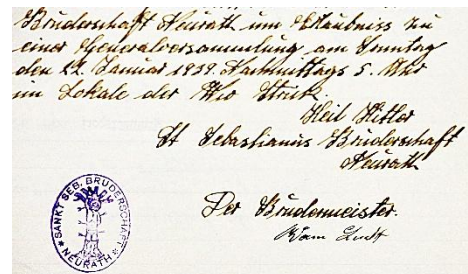 Bruderschaft Neurath um Erlaubniss zu
einer Generalversammlung am Sonntag
den 22. Januar 1939. Nachmittags 5. Uhr
im Lokale der Ww Strick.
Heil Hitler
St Sebastianus Bruderschaft
Neurath
Der Brudermeister.
SANKT SEB. BRUDERSCHAFT
* NEURATH *